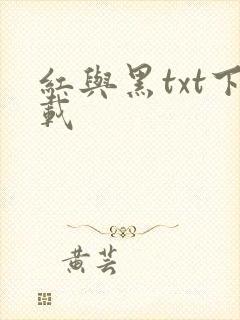 紅與黑txt下
載
黃芸